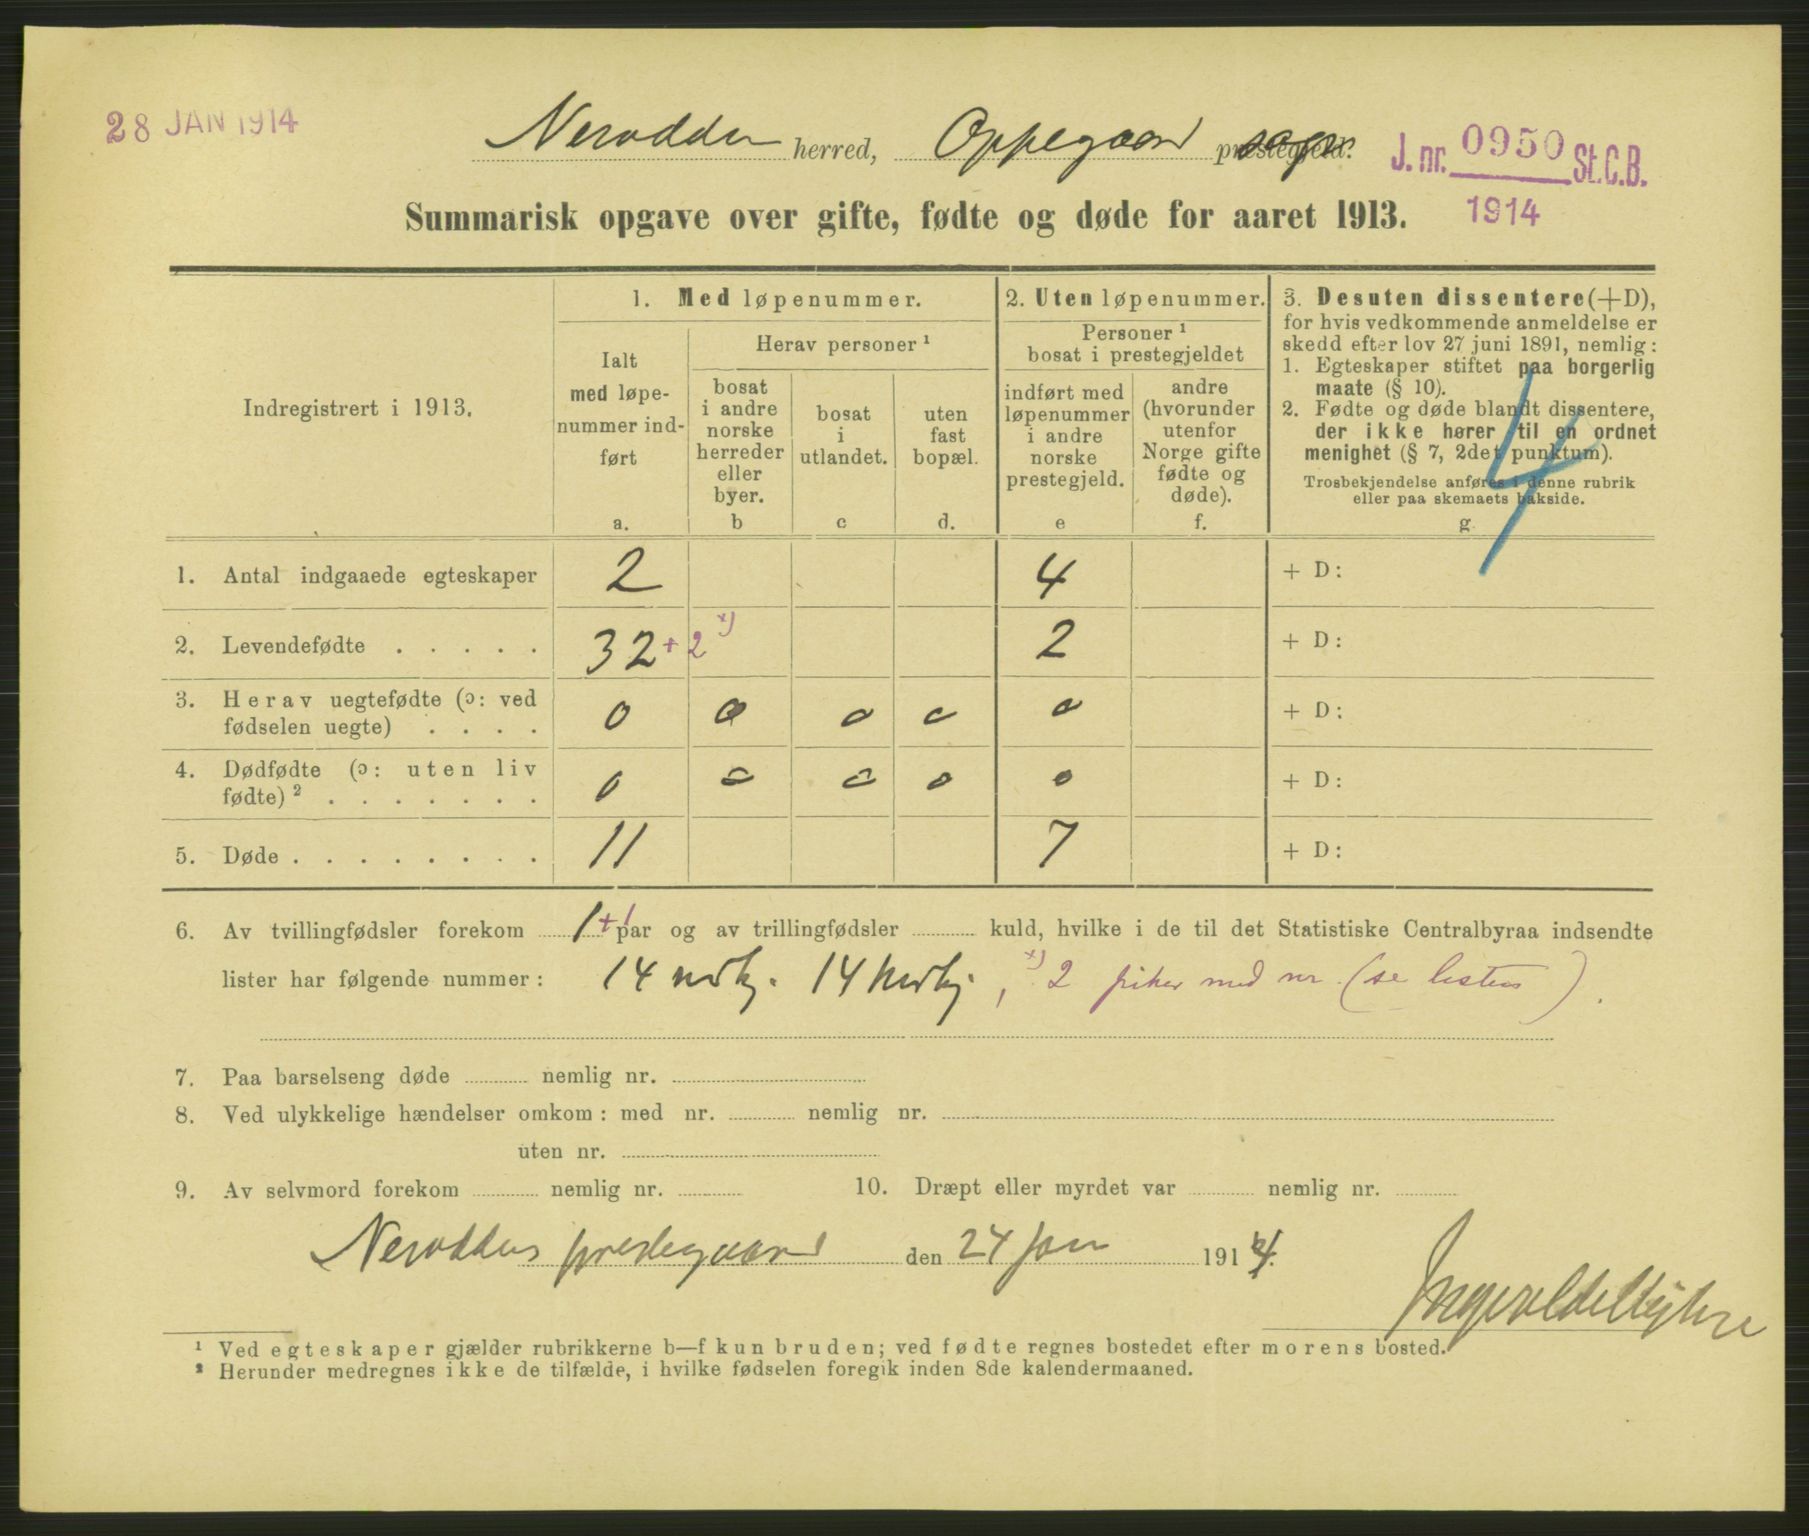 28 JAN 1914
Nesodden herred, Oppegaard sogn prestegjeld.
J. nr. 0950 St.C.B.
1914
Summarisk opgave over gifte, fødte og døde for aaret 1913.
Indregistrert i 1913.
1. Med løpenummer.
Ialt med løpe-nummer ind-ført
a.
Herav personer ¹
bosat i andre norske herreder eller byer.
b
bosat i utlandet.
c
uten fast bopæl.
d.
2. Uten løpenummer.
Personer ¹
bosat i prestegjeldet
indført med løpenummer i andre norske prestegjeld.
e
andre (hvorunder utenfor Norge gifte fødte og døde).
f.
3. Desuten dissentere (+D),
for hvis vedkommende anmeldelse er
skedd efter lov 27 juni 1891, nemlig:
1. Egteskaper stiftet paa borgerlig
maate (§ 10).
2. Fødte og døde blandt dissentere,
der ikke hører til en ordnet
menighet (§ 7, 2det punktum).
Trosbekjendelse anføres i denne rubrik
eller paa skemaets bakside.
g.
4
1. Antal indgaaede egteskaper 2 4 + D:
2. Levendefødte . . . . . 32 + 2 x) 2 + D:
3. Herav uegtefødte (ɔ: ved
fødselen uegte) . . . . 0 0 0 0 0 + D:
4. Dødfødte (ɔ: uten liv
fødte) ² . . . . . . . 0 0 0 0 0 + D:
5. Døde . . . . . . . . 11 7 + D:
6. Av tvillingfødsler forekom 1 + 1 par og av trillingfødsler kuld, hvilke i de til det Statistiske Centralbyraa indsendte
lister har følgende nummer: 14 mdkj. 14 kvdkj, x) 2 piker med nr. (se listen).
7. Paa barselseng døde nemlig nr.
8. Ved ulykkelige hændelser omkom: med nr. nemlig nr.
uten nr.
9. Av selvmord forekom nemlig nr. 10. Dræpt eller myrdet var nemlig nr.
Nesoddens prestegaard den 24 jan 1914.
¹ Ved egteskaper gjælder rubrikkerne b—f kun bruden; ved fødte regnes bostedet efter morens bosted.
² Herunder medregnes ikke de tilfælde, i hvilke fødselen foregik inden 8de kalendermaaned.